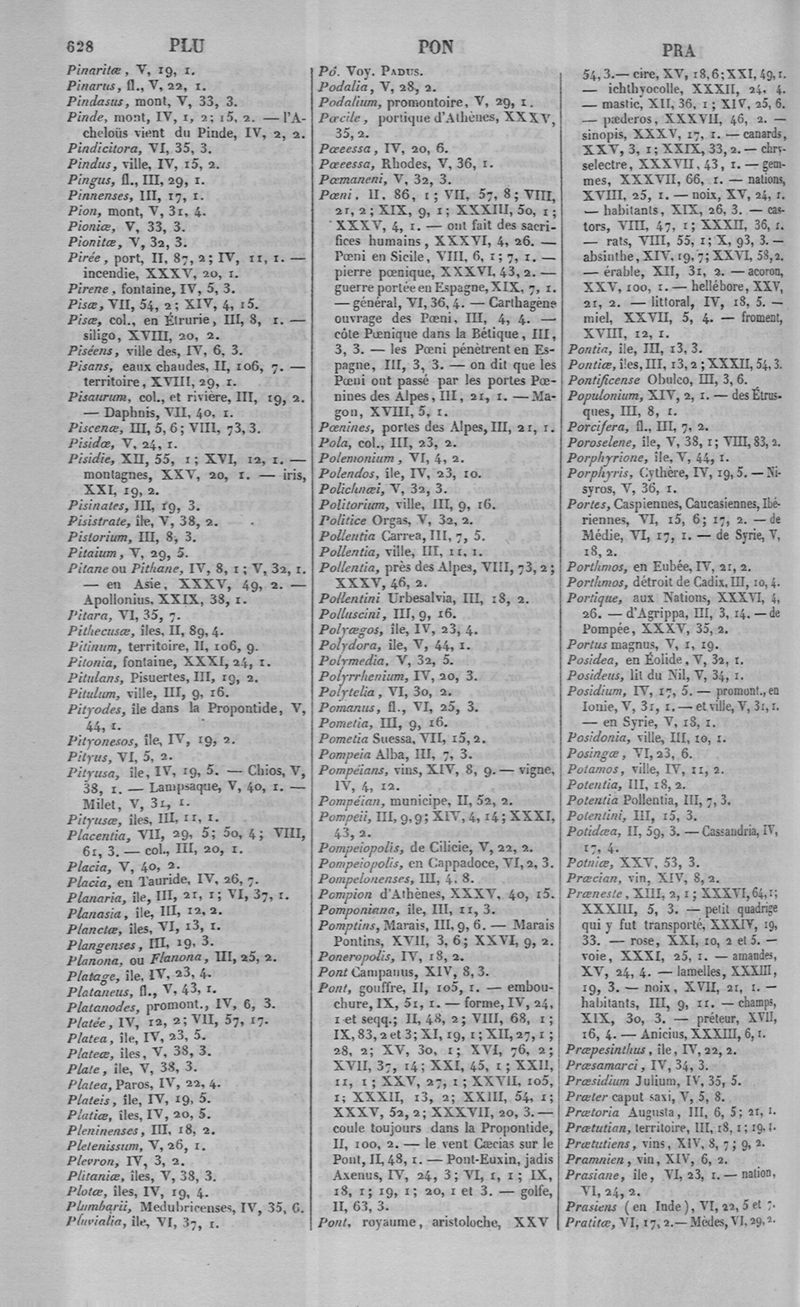 628 PLU PON PRA
Pinaritæ, V, 19, 1.
Pinarus, fl., V, 22, 1.
Pindasus, mont, V, 33, 3.
Pinde, mont, IV, 1, 2; 15, 2. — l'A-
cheloüs vient du Pinde, IV, 2, 2.
Pindicitora, VI, 35, 3.
Pindus, ville, IV, 15, 2.
Pingus, fl., III, 29, 1.
Pinnenses, III, 17, 1.
Pion, mont, V, 31, 4.
Pioniæ, V, 33, 3.
Pionitæ, V, 32, 3.
Pirée, port, II, 87, 2; IV, 11, 1. —
incendie, XXXV, 20, 1.
Pirene, fontaine, IV, 5, 3.
Pisæ, VII, 54, 2; XIV, 4, 15.
Pisæ, col., en Étrurie, III, 8, 1. —
siligo, XVIII, 20, 2.
Piséens, ville des, IV, 6, 3.
Pisans, eaux chaudes, II, 106, 7. —
territoire, XVIII, 29, 1.
Pisaurum, col., et rivière, III, 19, 2.
— Daphnis, VII, 40, 1.
Piscenæ, III, 5, 6; VIII, 73, 3.
Pisidæ, V, 24, 1.
Pisidie, XII, 55, 1; XVI, 12, 1. —
montagnes, XXV, 20, 1. — iris,
XXI, 19, 2.
Pisinates, III, 19, 3.
Pisistrate, île, V, 38, 2.
Pistorium, III, 8, 3.
Pitaium, V, 29, 5.
Pitane ou Pithane, IV, 8, 1; V, 32, 1.
— en Asie, XXXV, 49, 2. —
Apollonius, XXIX, 38, 1.
Pitara, VI, 35, 7.
Pithecusæ, îles, II, 89, 4.
Pitinum, territoire, II, 106, 9.
Pitonia, fontaine, XXXI, 24, 1.
Pitulans, Pisuertes, III, 19, 2.
Pitulum, ville, III, 9, 16.
Pityodes, île dans la Propontide, V,
44, 1.
Pityonesos, île, IV, 19, 2.
Pityus, VI, 5, 2.
Pityusa, île, IV, 19, 5. — Chios, V,
38, 1. — Lampsaque, V, 40, 1. —
Milet, V, 31, 1.
Pityusæ, îles, III, 11, 1.
Placentia, VII, 29, 5; 50, 4; VIII,
61, 3. — col., III, 20, 1.
Placia, V, 40, 2.
Placia, en Tauride, IV, 26, 7.
Planaria, île, III, 21, 1; VI, 37, 1.
Planasia, île, III, 12, 2.
Planctæ, îles, VI, 13, 1.
Plangenses, III, 19, 3.
Planona, ou Flanona, III, 25, 2.
Platage, île, IV, 23, 4.
Plataneus, fl., V, 43, 1.
Platanodes, promont., IV, 6, 3.
Platée, IV, 12, 2; VII, 57, 17.
Platea, île, IV, 23, 5.
Plateæ, îles, V, 38, 3.
Plate, île, V, 38, 3.
Platea, Paros, IV, 22, 4.
Plateis, île, IV, 19, 5.
Platiæ, îles, IV, 20, 5.
Pleninenses, III, 18, 2.
Pletenissum, V, 26, 1.
Plevron, IV, 3, 2.
Plitaniæ, îles, V, 38, 3.
Plotæ, îles, IV, 19, 4.
Plumbarii, Medubricenses, IV, 35, 6.
Pluvialia, île, VI, 37, 1.
Pô. Voy. PADUS.
Podalia, V, 28, 2.
Podalium, promontoire, V, 29, 1.
Pœcile, portique d'Athènes, XXXV,
35, 2.
Pæeessa, IV, 20, 6.
Pæeessa, Rhodes, V, 36, 1.
Pæmaneni, V, 32, 3.
Pœni, II, 86, 1; VII, 57, 8; VIII,
21, 2; XIX, 9, 1; XXXIII, 50, 1;
XXXV, 4, 1. — ont fait des sacri-
fices humains, XXXVI, 4, 26. —
Pœni en Sicile, VIII, 6, 1; 7, 1. —
pierre pœnique, XXXVI, 43, 2. —
guerre portée en Espagne, XIX, 7, 1.
— général, VI, 36, 4. — Carthagène
ouvrage des Pœni, III, 4, 4. —
côte Pœnique dans la Bétique, III,
3, 3. — les Pœni pénètrent en Es-
pagne, III, 3, 3. — on dit que les
Pœni ont passé par les portes Pœ-
nines des Alpes, III, 21, 1. — Ma-
gon, XVIII, 5, 1.
Pœnines, portes des Alpes, III, 21, 1.
Pola, col., III, 23, 2.
Polemonium, VI, 4, 2.
Polendos, île, IV, 23, 10.
Polichnæi, V, 32, 3.
Politorium, ville, III, 9, 16.
Politice Orgas, V, 32, 2.
Pollentia Carrea, III, 7, 5.
Pollentia, ville, III, 11, 1.
Pollentia, près des Alpes, VIII, 73, 2;
XXXV, 46, 2.
Pollentini Urbesalvia, III, 18, 2.
Polluscini, III, 9, 16.
Polyægos, île, IV, 23, 4.
Polydora, île, V, 44, 1.
Polymedia, V, 32, 5.
Polyrrhenium, IV, 20, 3.
Polytelia, VI, 30, 2.
Pomanus, fl., VI, 25, 3.
Pometia, III, 9, 16.
Pometia Suessa, VII, 15, 2.
Pompeia Alba, III, 7, 3.
Pompéians, vins, XIV, 8, 9. — vigne,
IV, 4, 12.
Pompéian, municipe, II, 52, 2.
Pompeii, III, 9, 9; XIV, 4, 14; XXXI,
43, 2.
Pompeiopolis, de Cilicie, V, 22, 2.
Pompeiopolis, en Cappadoce, VI, 2, 3.
Pompelonenses, III, 4, 8.
Pompion d'Athènes, XXXV, 40, 15.
Pomponiana, île, III, 11, 3.
Pomptins, Marais, III, 9, 6. — Marais
Pontins, XVII, 3, 6; XXVI, 9, 2.
Poneropolis, IV, 18, 2.
Pont Campanus, XIV, 8, 3.
Pont, gouffre, II, 105, 1. — embou-
chure, IX, 51, 1. — forme, IV, 24,
1 et seqq.; II, 48, 2; VIII, 68, 1;
IX, 83, 2 et 3; XI, 19, 1; XII, 27, 1;
28, 2; XV, 30, 1; XVI, 76, 2;
XVII, 37, 14; XXI, 45, 1; XXII,
11, 1; XXV, 27, 1; XXVII, 105,
1; XXXII, 13, 2; XXIII, 54, 1;
XXXV, 52, 2; XXXVII, 20, 3. —
coule toujours dans la Propontide,
II, 100, 2. — le vent Cæcias sur le
Pont, II, 48, 1. — Pont-Euxin, jadis
Axenus, IV, 24, 3; VI, 1, 1; IX,
18, 1; 19, 1; 20, 1 et 3. — golfe,
II, 63, 3.
Pont, royaume, aristoloche, XXV
54, 3. — cire, XV, 18, 6; XXI, 49, 1.
— ichthyocolle, XXXII, 24, 4.
— mastic, XII, 36, 1; XIV, 25, 6.
— pæderos, XXXVII, 46, 2. —
sinopis, XXXV, 17, 1. — canards,
XXV, 3, 1; XXIX, 33, 2. — chry-
selectre, XXXVII, 43, 1. — gem-
mes, XXXVII, 66, 1. — nations,
XVIII, 25, 1. — noix, XV, 24, 1.
— habitants, XIX, 26, 3. — cas-
tors, VIII, 47, 1; XXXII, 36, 1.
— rats, VIII, 55, 1; X, 93, 3. —
absinthe, XIV, 19, 7; XXVI, 58, 2.
— érable, XII, 31, 2. — acoron,
XXV, 100, 1. — hellébore, XXV,
21, 2. — littoral, IV, 18, 5. —
miel, XXVII, 5, 4. — froment,
XVIII, 12, 1.
Pontia, île, III, 13, 3.
Pontiæ, îles, III, 13, 2; XXXII, 54, 3.
Pontificense Obulco, III, 3, 6.
Populonium, XIV, 2, 1. — des Étrus-
ques, III, 8, 1.
Porcifera, fl., III, 7, 2.
Poroselene, île, V, 38, 1; VIII, 83, 2.
Porphyrione, île, V, 44, 1.
Porphyris, Cythère, IV, 19, 5. — Ni-
syros, V, 36, 1.
Portes, Caspiennes, Caucasiennes, Ibé-
riennes, VI, 15, 6; 17, 2. — de
Médie, VI, 17, 1. — de Syrie, V,
18, 2.
Porthmos, en Eubée, IV, 21, 2.
Porthmos, détroit de Cadix, III, 10, 4.
Portique, aux Nations, XXXVI, 4,
26. — d'Agrippa, III, 3, 14. — de
Pompée, XXXV, 35, 2.
Portus magnus, V, 1, 19.
Posidea, en Éolide, V, 32, 1.
Posideus, lit du Nil, V, 34, 1.
Posidium, IV, 17, 5. — promont., en
Ionie, V, 31, 1. — et ville, V, 31, 1.
— en Syrie, V, 18, 1.
Posidonia, ville, III, 10, 1.
Posingæ, VI, 23, 6.
Potamos, ville, IV, 11, 2.
Potentia, III, 18, 2.
Potentia Pollentia, III, 7, 3.
Potentini, III, 15, 3.
Potidæa, II, 59, 3. — Cassandria, IV,
17, 4.
Potniæ, XXV, 53, 3.
Præcian, vin, XIV, 8, 2.
Præneste, XIII, 2, 1; XXXVI, 64, 1;
XXXIII, 5, 3. — petit quadrige
qui y fut transporté, XXXIV, 19,
33. — rose, XXI, 10, 2 et 5. —
voie, XXXI, 25, 1. — amandes,
XV, 24, 4. — lamelles, XXXIII,
19, 3. — noix, XVII, 21, 1. —
habitants, III, 9, 11. — champs,
XIX, 30, 3. — préteur, XVII,
16, 4. — Anicius, XXXIII, 6, 1.
Præpesinthus, île, IV, 22, 2.
Præsamarci, IV, 34, 3.
Præsidium Julium, IV, 35, 5.
Præter caput saxi, V, 5, 8.
Prætoria Augusta, III, 6, 5; 21, 1.
Prætutian, territoire, III, 18, 1; 19, 1.
Prætutiens, vins, XIV, 8, 7; 9, 2.
Pramnien, vin, XIV, 6, 2.
Prasiane, île, VI, 23, 1. — nation,
VI, 24, 2.
Prasiens (en Inde), VI, 22, 5 et 7.
Pratitæ, VI, 17, 2. — Mèdes, VI, 29, 2.